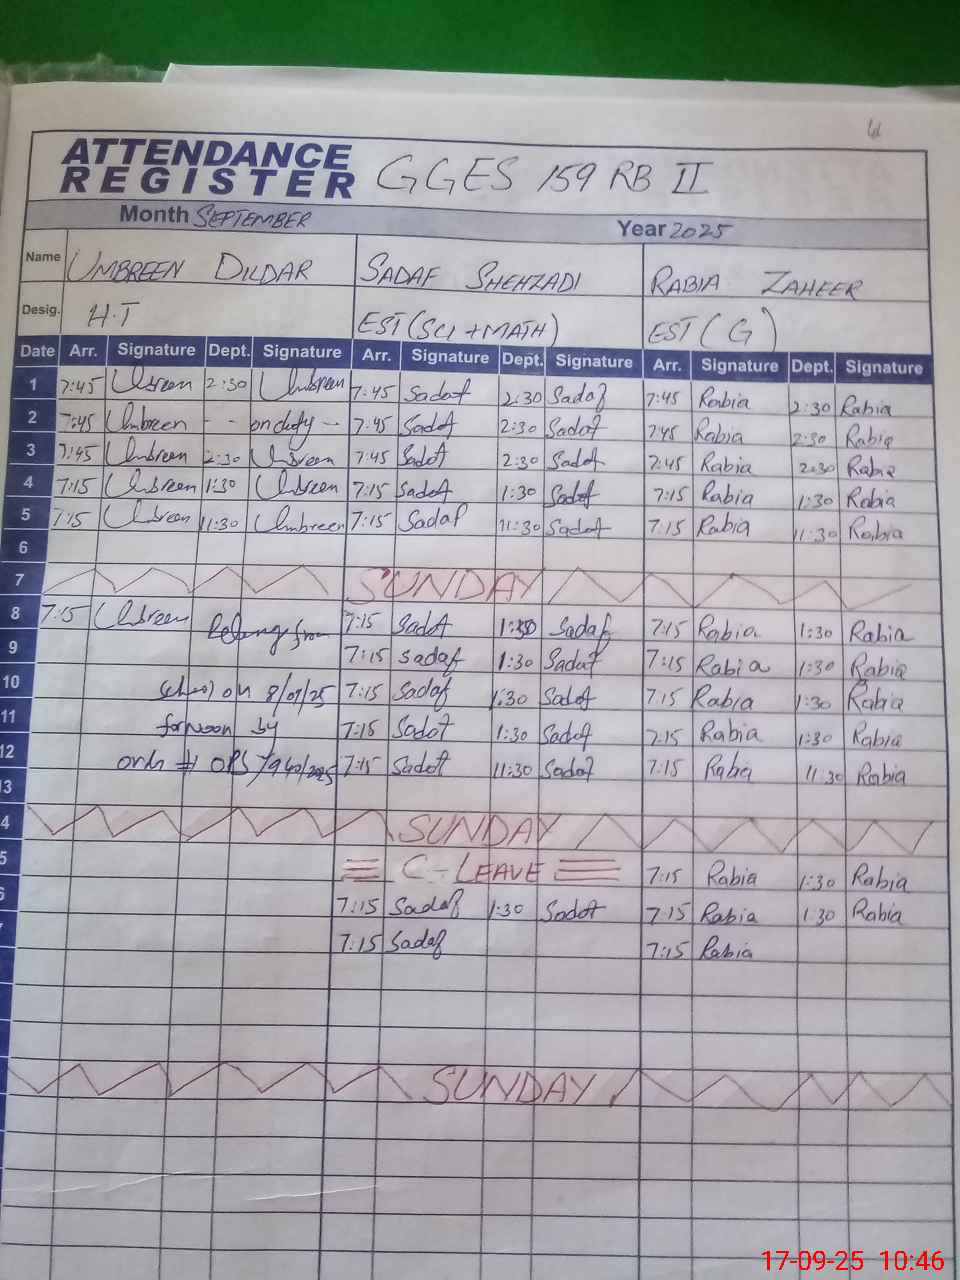 ATTENDANCE
REGISTER GGES 159 RB II
Month SEPTEMBER Year 2025
Name UMBREEN DILDAR SADAF SHEHZADI RABIA ZAHEER
Desig. H.T EST (SCI + MATH) EST (G)
Date Arr. Signature Dept. Signature Arr. Signature Dept. Signature Arr. Signature Dept. Signature
1 7:45 Umbreen 2:30 Umbreen 7:45 Sadaf 2:30 Sadaf 7:45 Rabia 2:30 Rabia
2 7:45 Umbreen -- on duty -- 7:45 Sadaf 2:30 Sadaf 7:45 Rabia 2:30 Rabia
3 7:45 Umbreen 2:30 Umbreen 7:45 Sadaf 2:30 Sadaf 7:45 Rabia 2:30 Rabia
4 7:15 Umbreen 1:30 Umbreen 7:15 Sadaf 1:30 Sadaf 7:15 Rabia 1:30 Rabia
5 7:15 Umbreen 11:30 Umbreen 7:15 Sadaf 11:30 Sadaf 7:15 Rabia 11:30 Rabia
6
7 SUNDAY
8 7:15 Umbreen from 7:15 Sadaf 1:30 Sadaf 7:15 Rabia 1:30 Rabia
9 7:15 Sadaf 1:30 Sadaf 7:15 Rabia 1:30 Rabia
10 on 8/09/25 7:15 Sadaf 1:30 Sadaf 7:15 Rabia 1:30 Rabia
11 fornoon by 7:15 Sadaf 1:30 Sadaf 7:15 Rabia 1:30 Rabia
12 order # 7:15 Sadaf 11:30 Sadaf 7:15 Rabia 11:30 Rabia
13
4 SUNDAY
5 C-LEAVE 7:15 Rabia 1:30 Rabia
6 7:15 Sadaf 1:30 Sadaf 7:15 Rabia 1:30 Rabia
7:15 Sadaf 7:15 Rabia
SUNDAY
17-09-25 10:46